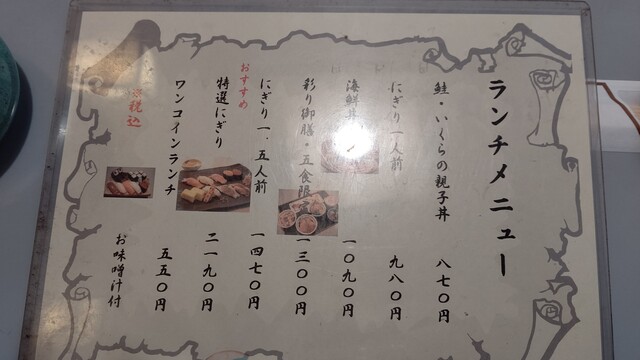 ランチメニュー
鮭・いくらの親子丼 八七〇円
にぎり一人前 九八〇円
海鮮丼 一〇九〇円
彩り御膳・五食限 一三〇〇円
にぎり一．五人前 一四七〇円
おすすめ
特選にぎり 二一九〇円
ワンコインランチ 五五〇円
税込
お味噌汁付